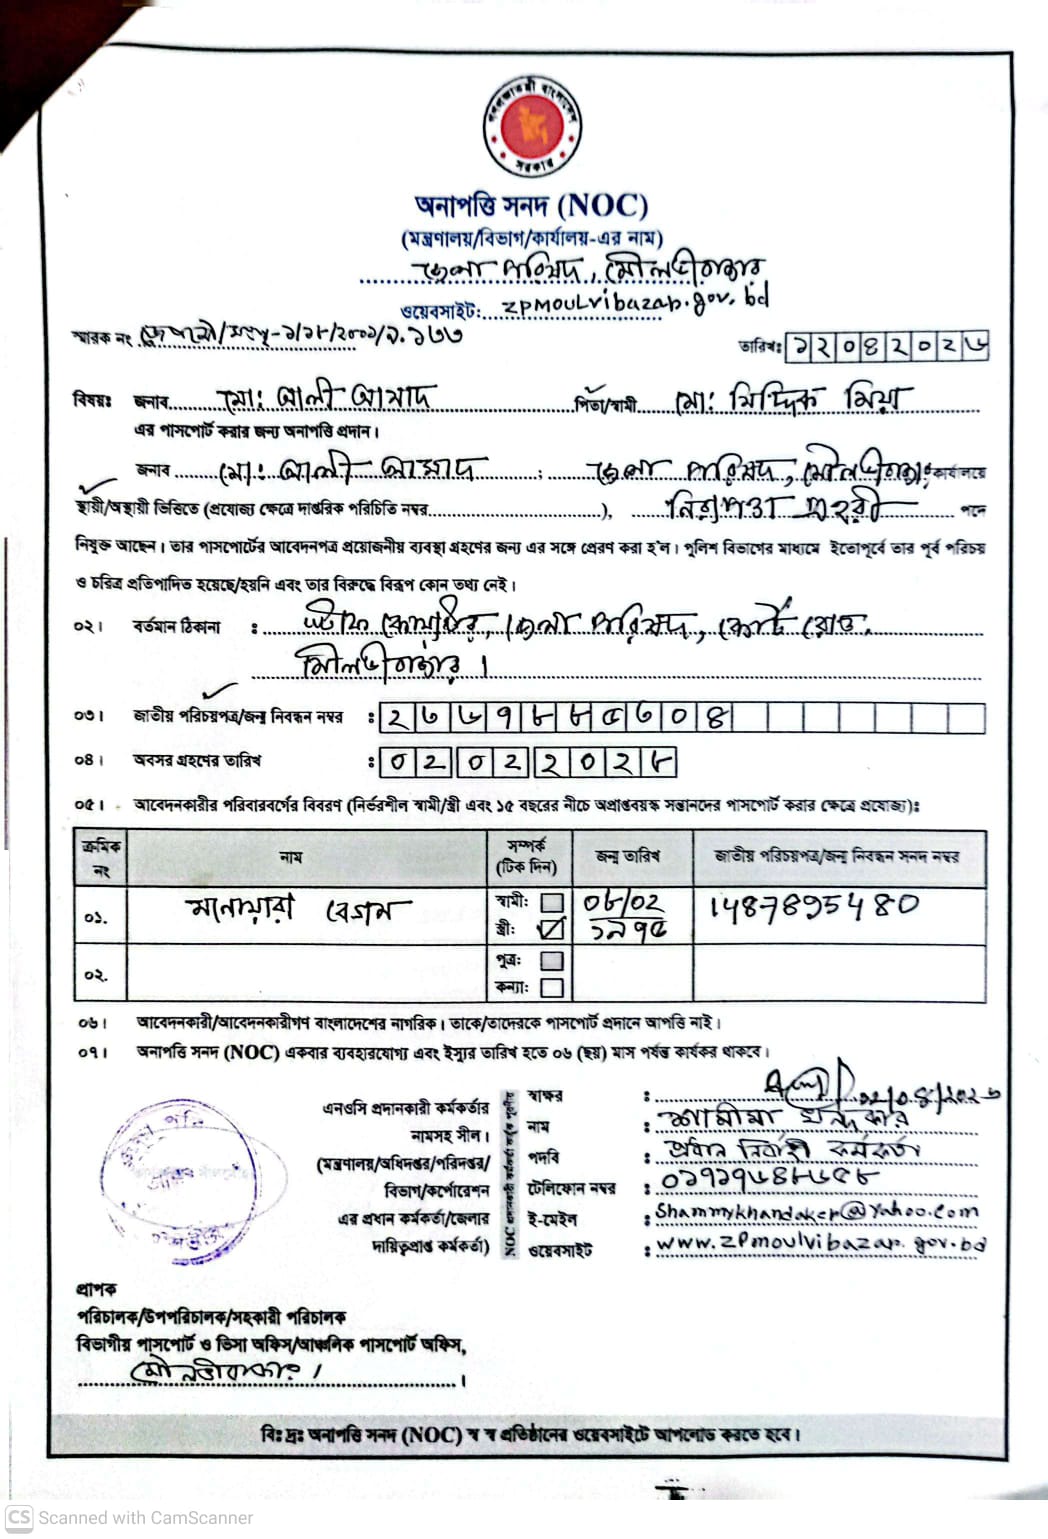 গণপ্রজাতন্ত্রী বাংলাদেশ
সরকার
অনাপত্তি সনদ (NOC)
(মন্ত্রণালয়/বিভাগ/কার্যালয়-এর নাম)
জেলা পরিষদ, মৌলভীবাজার
ওয়েবসাইট: zpmoulvibazar.gov.bd
স্মারক নং
তারিখঃ ১২০৪২০২৬
বিষয়ঃ জনাব মো: আলী আমাদ পিতা/স্বামী মো: সিদ্দিক মিয়া
এর পাসপোর্ট করার জন্য অনাপত্তি প্রদান।
জনাব মো: আলী আমাদ ; জেলা পরিষদ, মৌলভীবাজার কার্যালয়ে
স্থায়ী/অস্থায়ী ভিত্তিতে (প্রযোজ্য ক্ষেত্রে দাপ্তরিক পরিচিতি নম্বর), নিরাপত্তা প্রহরী পদে
নিযুক্ত আছেন। তার পাসপোর্টের আবেদনপত্র প্রয়োজনীয় ব্যবস্থা গ্রহণের জন্য এর সঙ্গে প্রেরণ করা হ'ল। পুলিশ বিভাগের মাধ্যমে ইতোপূর্বে তার পূর্ব পরিচয়
ও চরিত্র প্রতিপাদিত হয়েছে/হয়নি এবং তার বিরুদ্ধে বিরূপ কোন তথ্য নেই।
০২। বর্তমান ঠিকানা : স্টাফ কোয়ার্টার, জেলা পরিষদ, কোর্ট রোড,
মৌলভীবাজার।
০৩। জাতীয় পরিচয়পত্র/জন্ম নিবন্ধন নম্বর : ২৩৬৭৮৮৫৩০৪
০৪। অবসর গ্রহণের তারিখ : ০২০২২০২৮
০৫। আবেদনকারীর পরিবারবর্গের বিবরণ (নির্ভরশীল স্বামী/স্ত্রী এবং ১৫ বছরের নীচে অপ্রাপ্তবয়স্ক সন্তানদের পাসপোর্ট করার ক্ষেত্রে প্রযোজ্য):
ক্রমিক নং নাম সম্পর্ক (টিক দিন) জন্ম তারিখ জাতীয় পরিচয়পত্র/জন্ম নিবন্ধন সনদ নম্বর
০১. মনোয়ারা বেগম স্বামী: স্ত্রী: ০৮/০২ ১৯৭৫ 1487895480
০২. পুত্র: কন্যা:
০৬। আবেদনকারী/আবেদনকারীগণ বাংলাদেশের নাগরিক। তাকে/তাদেরকে পাসপোর্ট প্রদানে আপত্তি নাই।
০৭। অনাপত্তি সনদ (NOC) একবার ব্যবহারযোগ্য এবং ইস্যুর তারিখ হতে ০৬ (ছয়) মাস পর্যন্ত কার্যকর থাকবে।
এনওসি প্রদানকারী কর্মকর্তার
নামসহ সীল।
(মন্ত্রণালয়/অধিদপ্তর/পরিদপ্তর/
বিভাগ/কর্পোরেশন
এর প্রধান কর্মকর্তা/জেলার
দায়িত্বপ্রাপ্ত কর্মকর্তা)
স্বাক্ষর :
নাম : শামীমা খন্দকার
পদবি : প্রধান নির্বাহী কর্মকর্তা
টেলিফোন নম্বর : ০১৭১৭৬৪৮৬৫৮
ই-মেইল : Shammykhandaker@Yahoo.com
ওয়েবসাইট : www.zpmoulvibazar.gov.bd
প্রাপক
পরিচালক/উপপরিচালক/সহকারী পরিচালক
বিভাগীয় পাসপোর্ট ও ভিসা অফিস/আঞ্চলিক পাসপোর্ট অফিস,
মৌলভীবাজার।
বিঃ দ্রঃ অনাপত্তি সনদ (NOC) স্ব স্ব প্রতিষ্ঠানের ওয়েবসাইটে আপলোড করতে হবে।
CS Scanned with CamScanner